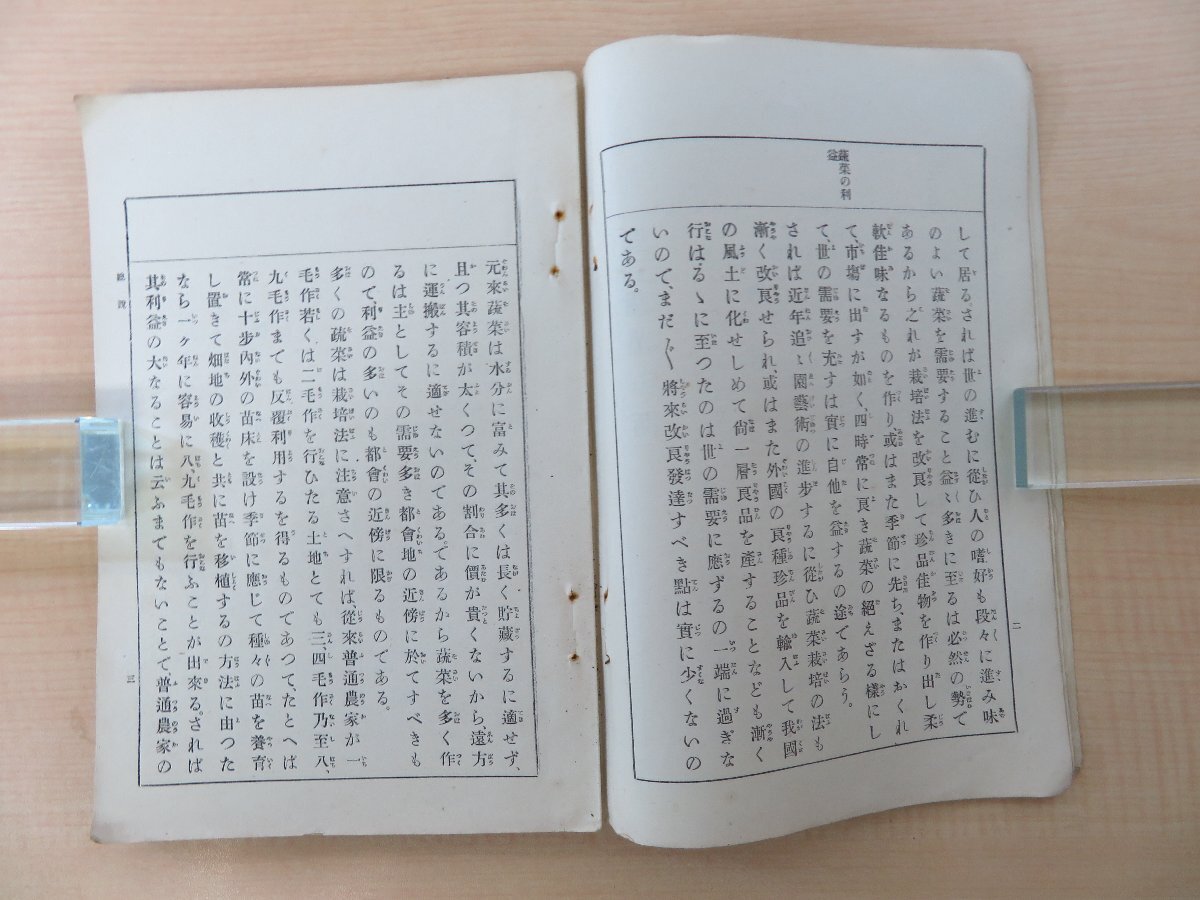 蔬菜の利
益
二
して居る。されば世の進むに從ひ人の嗜好も段々に進み味
のよい蔬菜を需要すること益〻多きに至るは必然の勢で
あるから之れが栽培法を改良して珍品佳物を作り出し柔
軟佳味なるものを作り、或はまた季節に先ち、またはおくれ
て、市塲に出すが如く、四時常に良き蔬菜の絕えざる樣にし
て、世の需要を充すは實に自他を益するの途であらう。
されば近年追〻園藝術の進步するに從ひ蔬菜栽培の法も
漸く改良せられ、或はまた外國の良種珍品を輸入して我國
の風土に化せしめて尙一層良品を產することなども漸く
行はるゝに至つたのは世の需要に應ずるの一端に過ぎな
いので、まだ〳〵將來改良發達すべき點は實に少くないの
である。
元來蔬菜は水分に富みて其多くは長く貯藏するに適せず、
且つ其容積が太くつて、その割合に價が貴くないから、遠方
に運搬するに適せないのである。であるから蔬菜を多く作
るは主としてその需要多き都會地の近傍に於てすべきも
ので、利益の多いのも都會の近傍に限るものである。
多くの蔬菜は栽培法に注意さへすれば從來普通農家が一
毛作若くは二毛作を行ひたる土地とても三、四毛作乃至八、
九毛作までも反覆利用するを得るものであつて、たとへば
常に十步內外の苗床を設け季節に應じて種々の苗を養育
し置きて畑地の收穫と共に苗を移植するの方法に由つた
なら一ヶ年に容易に八、九毛作を行ふことが出來る。されば
其利益の大なることは云ふまでもないことで、普通農家の
總說
三